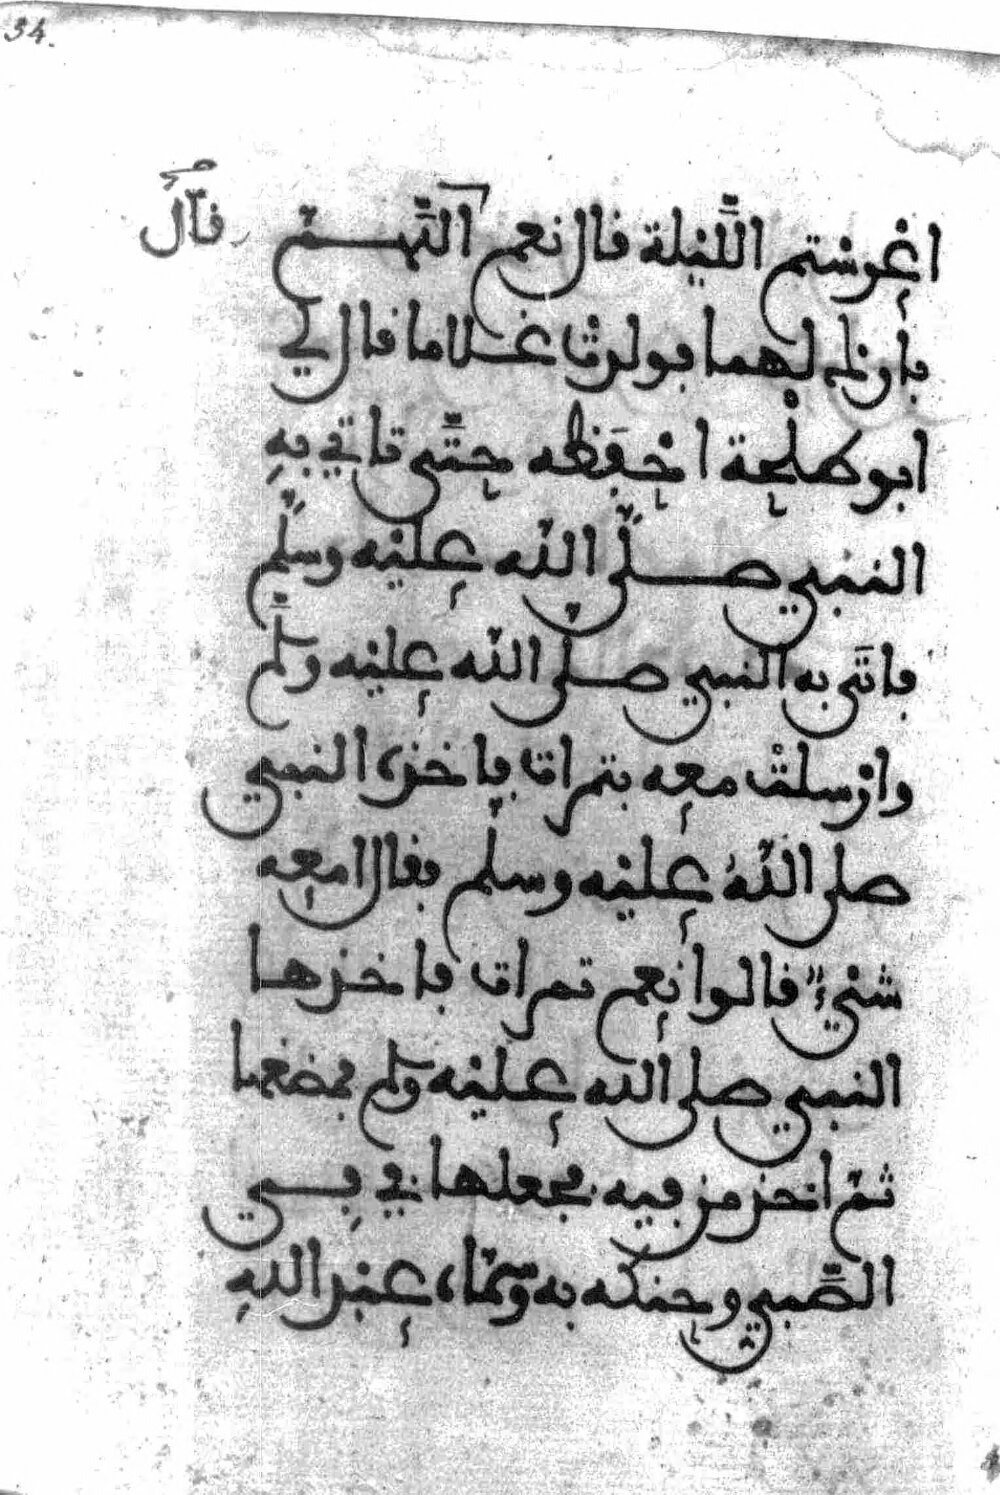 34.
اعْرسْتم اللَّيْلة قال نعم اللَّهـــمّ
قال
بارك لهما فولدتْ غـــلاما قال لي
ابو طلْحة احْفَظه حتَّى تاتي بهِ
النبي صـــلَّى اللّه عليْه وسلَّم
فاتَى به النبي صـــلى اللّه عليْه وسلَّم
وارْسلتْ معه بتمرات فاخذه النبي
صلى اللّهُ عليْه وسلم فقال امعه
شيْءٌ قالوا نعم تمرات فاخذها
النبي صلى الله عليْه وسلم فمضغها
ثمّ اخذ من فيه فجعلها في فـــي
الصَّبي وحنكه به وسمّاه عبد اللهِ